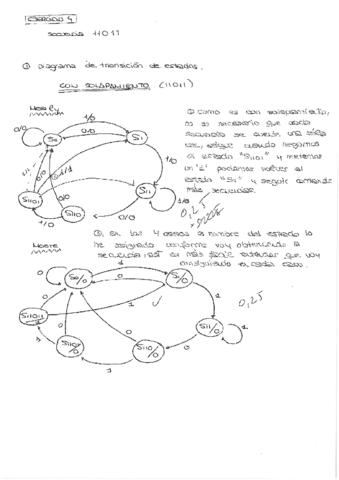 EJERCICIO 4
secuencia 11011
① Diagrama de transición de estados.
CON SOLAPAMIENTO (11011)
Mealy
1/0
0/0
0/0
S0
S1
1/0
1/1
S1101
S110
S11
0/0
1/0
① Como es con solapamiento,
no es necesario que cada
secuencia se cuente una sola
vez, cuando llegamos
al estado "S1101" y metemos
un "1" podemos volver al
estado "S11" y seguir
más secuencias.
0,25
② En los 4 casos el nombre del estado lo
he asignado conforme voy obteniendo la
secuencia, así es más fácil entender que voy
consiguiendo en cada caso.
Moore
0
1
S0/0
S1/0
0
0
1
1
S11011
1
0,25
S11/0
1
S1101/0
S110/0
0
1